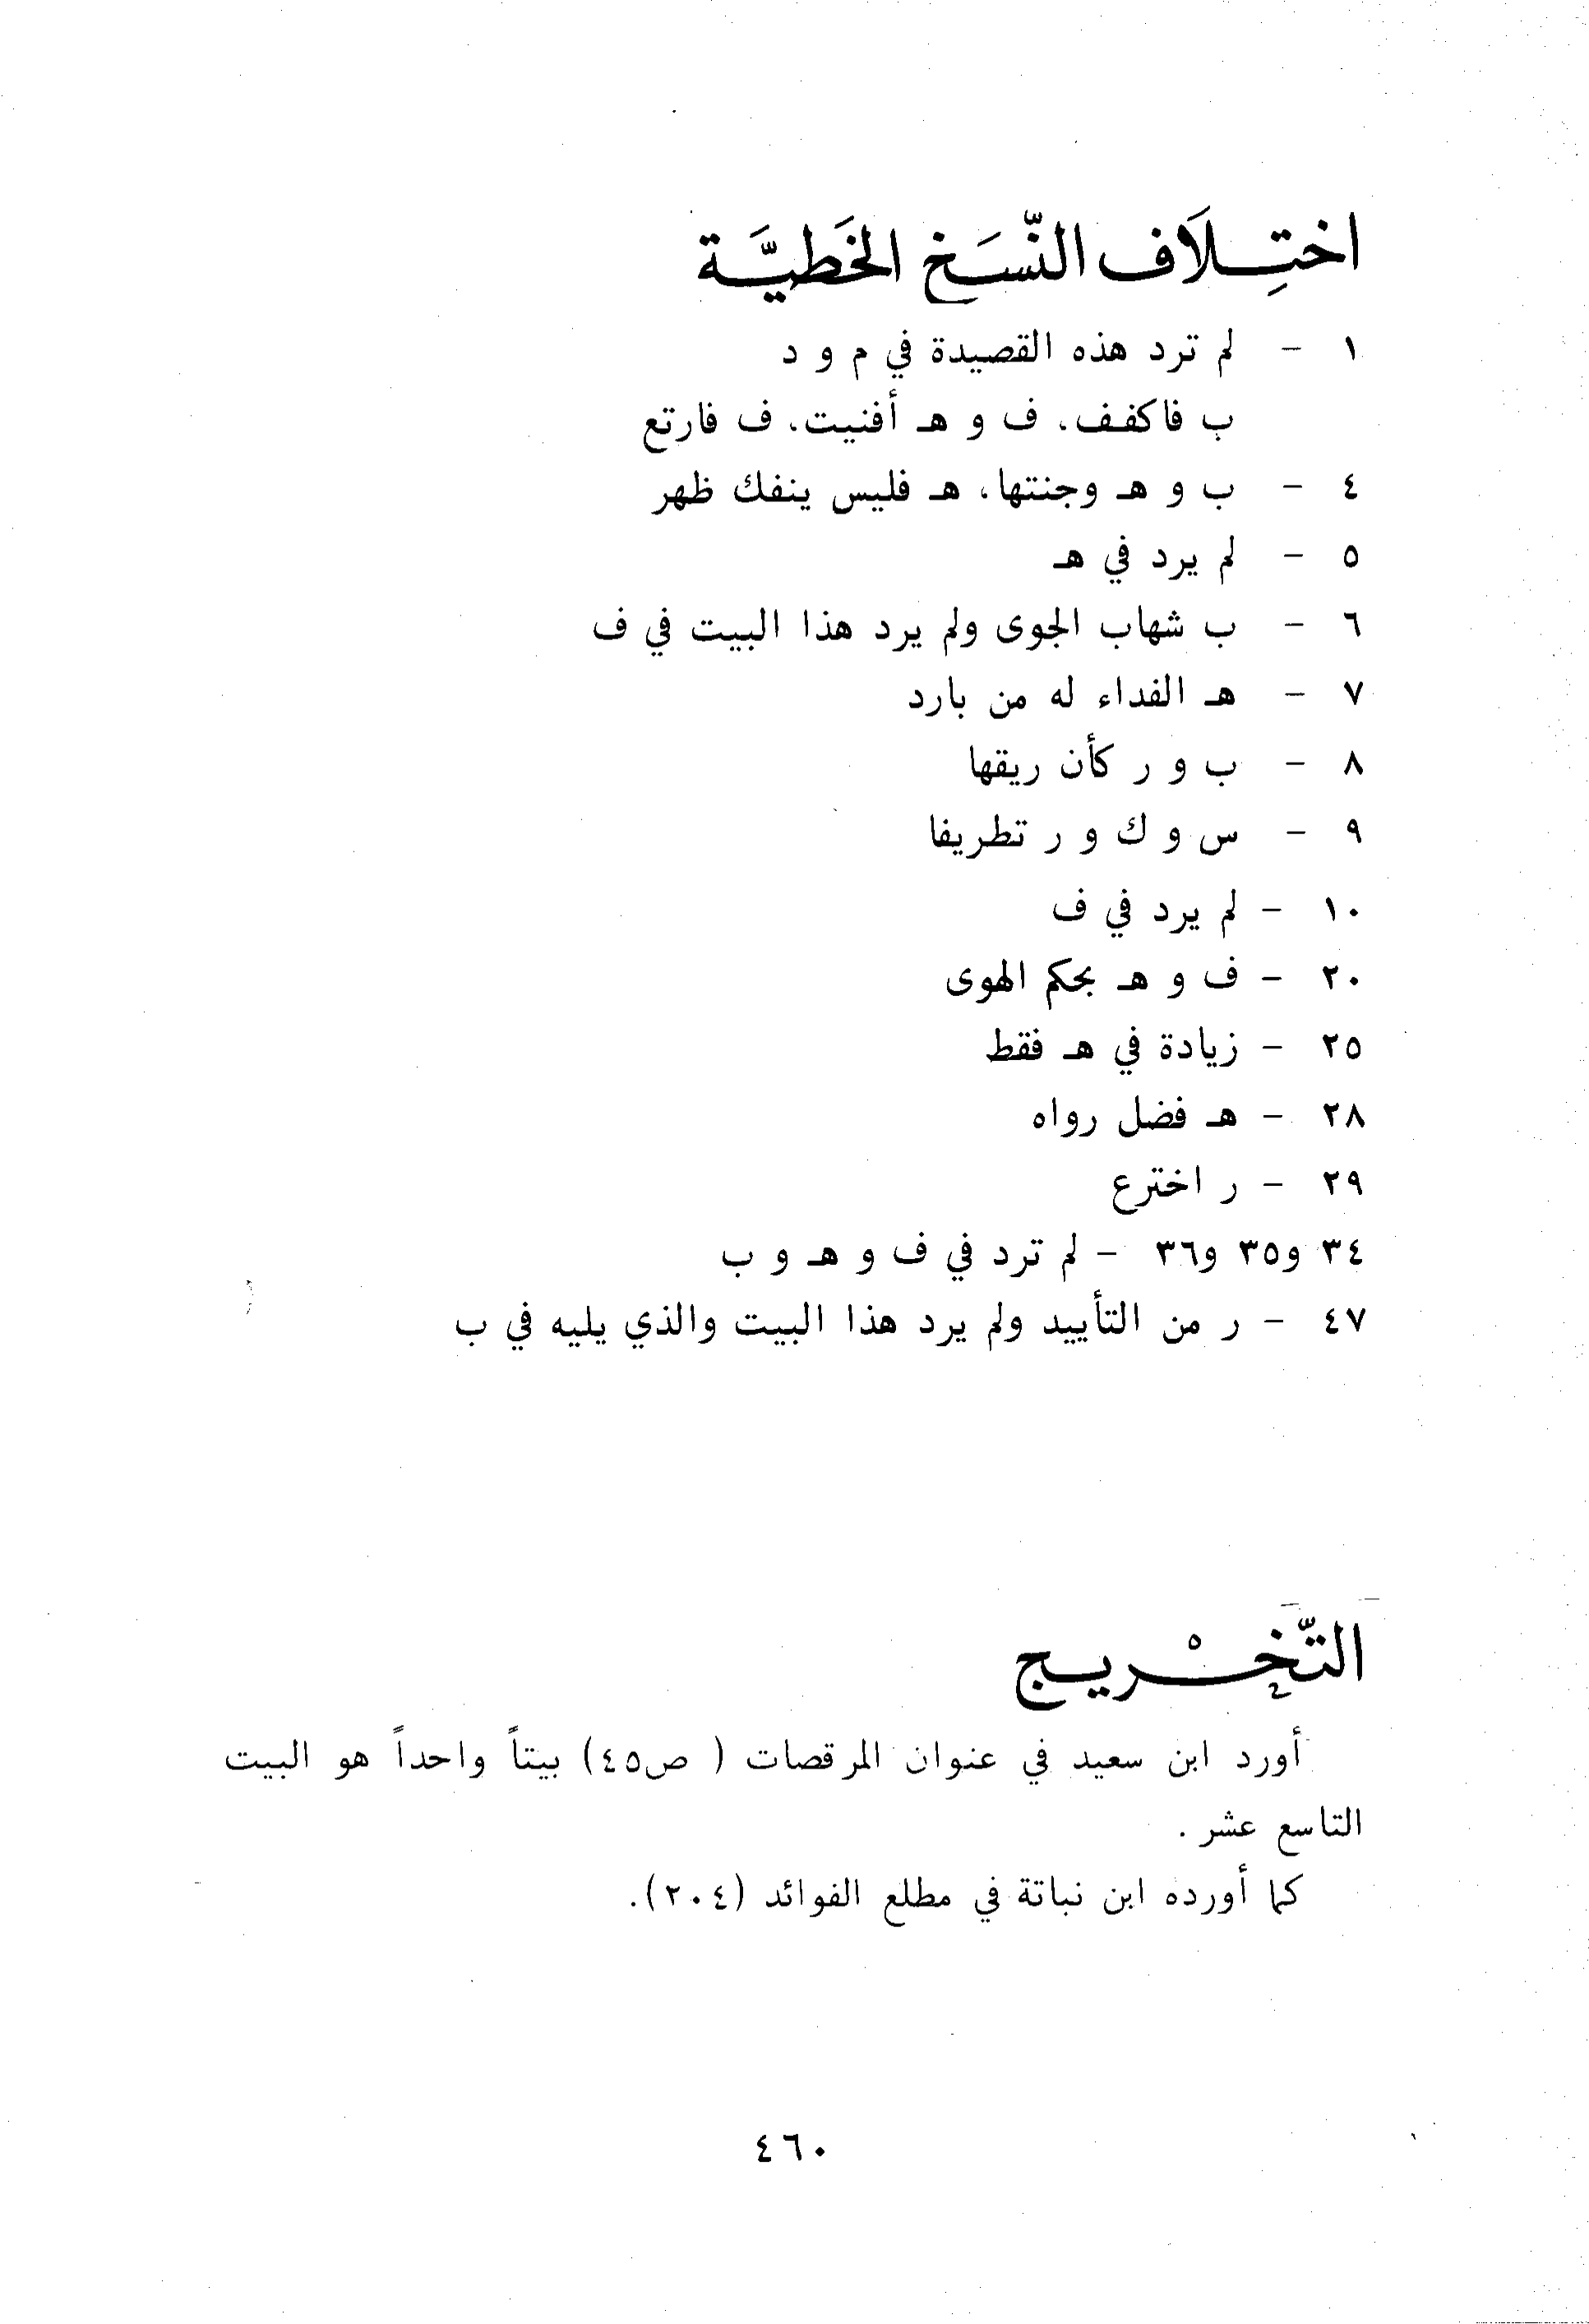 اختِلَاف النّسَخ الخَطيَّة
١ - لم ترد هذه القصيدة في م و د
ب فاكفف، ف و هـ أفنيت، ف فارتع
٤ - ب و هـ وجنتها، هـ فليس ينفك ظهر
٥ - لم يرد في هـ
٦ - ب شهاب الجوى ولم يرد هذا البيت في ف
٧ - هـ الفداء له من بارد
٨ - ب و ر كأن ريقها
٩ - س و ك و ر تطريفا
١٠ - لم يرد في ف
٢٠ - ف و هـ بحكم الهوى
٢٥ - زيادة في هـ فقط
٢٨ - هـ فضل رواه
٢٩ - ر اخترع
٣٤ و٣٥ و٣٦ - لم ترد في ف و هـ و ب
٤٧ - ر من التأييد ولم يرد هذا البيت والذي يليه في ب
التّخْريج
أورد ابن سعيد في عنوان المرقصات ( ص٤٥) بيتاً واحداً هو البيت
التاسع عشر .
كما أورده ابن نباتة في مطلع الفوائد (٢٠٤).
٤٦٠